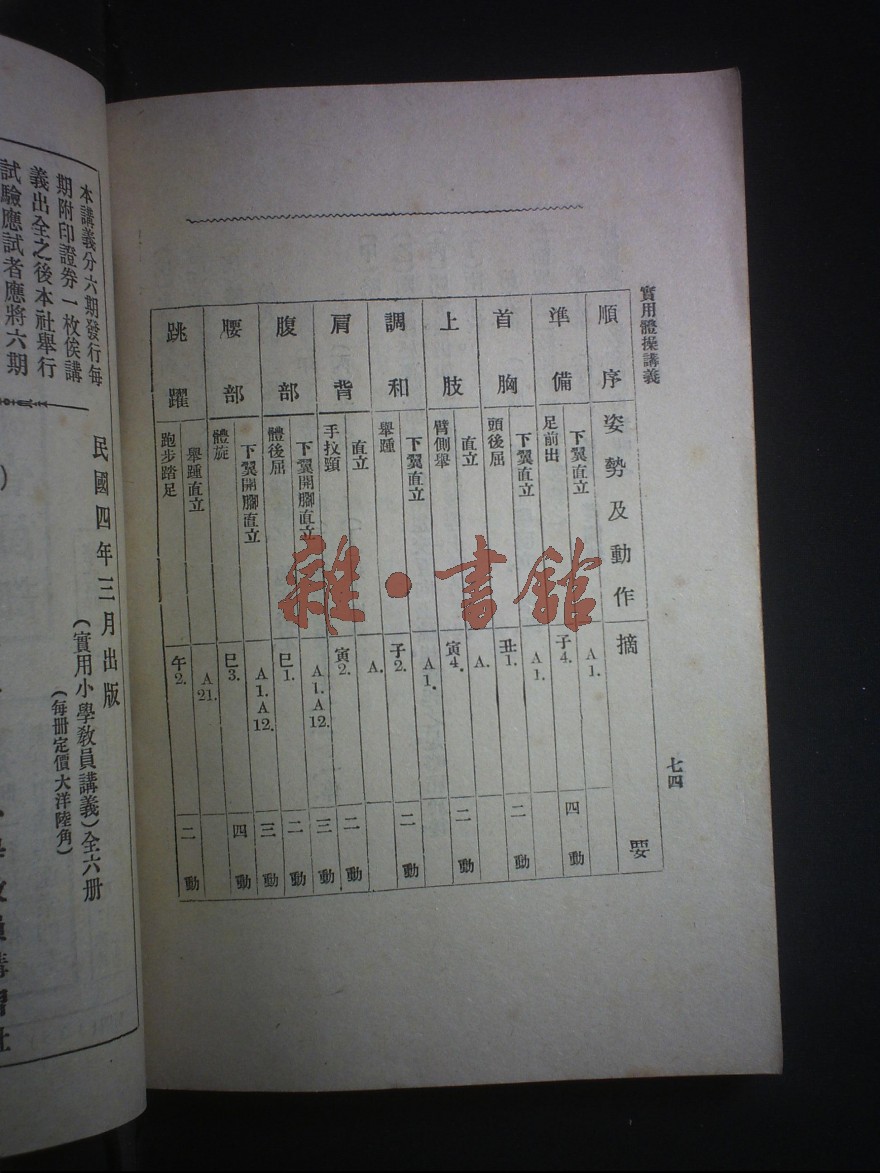 實用體操講義
七四
順序 姿勢及動作 摘要
準備 下翼直立 A 1.
足前出 子 4. 四動
首胸 下翼直立 A 1.
頭後屈 丑 1. 二動
上肢 直立 A.
臂側舉 寅 4. 二動
調和 下翼直立 A 1.
舉踵 子 2. 二動
肩背 直立 A.
手拉頸 寅 2. 二動
腹部 下翼開腳直立 A 1. A 12. 三動
體後屈 巳 1. 二動
腰部 下翼開腳直立 A 1. A 12. 三動
體旋 巳 3. 四動
跳躍 舉踵直立 A 21.
跑步踏足 午 2. 二動
雜·書館
本講義分六期發行每
期附印證券一枚俟講
義出全之後本社舉行
試驗應試者應將六期
民國四年三月出版
(實用小學教員講義)全六册
(每册定價大洋陸角)